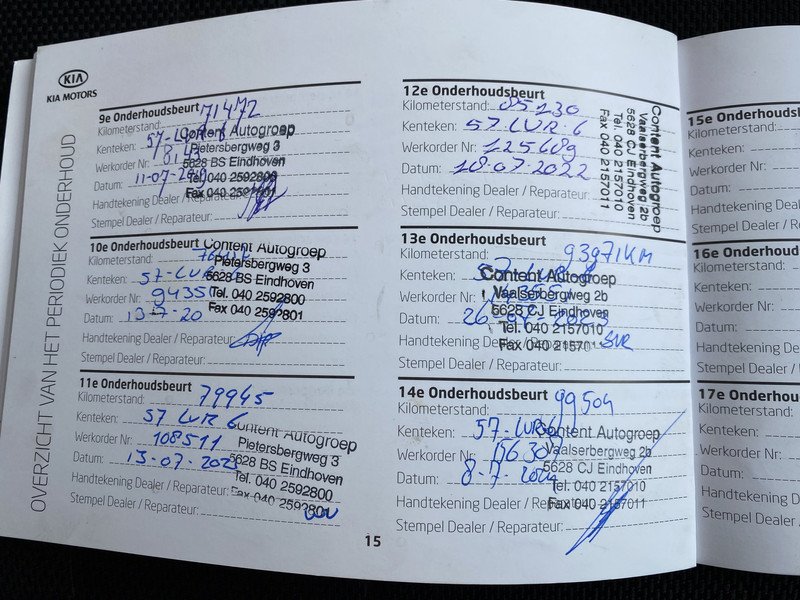 KIA
KIA MOTORS
OVERZICHT VAN HET PERIODIEK ONDERHOUD
9e Onderhoudsbeurt
Kilometerstand: 71472
Kenteken: 57-LVR-6
Werkorder Nr:
Datum: 11-07-2019
Handtekening Dealer / Reparateur:
Stempel Dealer / Reparateur:
Content Autogroep
Pietersbergweg 3
5628 BS Eindhoven
Tel. 040 2592800
Fax 040 2592801
10e Onderhoudsbeurt
Kilometerstand:
Kenteken: 57-LVR-6
Werkorder Nr: 9435
Datum: 13-7-20
Handtekening Dealer / Reparateur:
Stempel Dealer / Reparateur:
Content Autogroep
Pietersbergweg 3
5628 BS Eindhoven
Tel. 040 2592800
Fax 040 2592801
11e Onderhoudsbeurt
Kilometerstand: 79945
Kenteken: 57 LVR 6
Werkorder Nr: 108511
Datum: 13-07-2021
Handtekening Dealer / Reparateur:
Stempel Dealer / Reparateur:
Content Autogroep
Pietersbergweg 3
5628 BS Eindhoven
Tel. 040 2592800
Fax 040 2592801
15
12e Onderhoudsbeurt
Kilometerstand: 85130
Kenteken: 57 LVR 6
Werkorder Nr: 125689
Datum: 18-07-2022
Handtekening Dealer / Reparateur:
Stempel Dealer / Reparateur:
Content Autogroep
Vaalserbergweg 2b
5628 CJ Eindhoven
Tel 040 2157010
Fax 040 2157011
13e Onderhoudsbeurt
Kilometerstand: 93971KM
Kenteken:
Werkorder Nr:
Datum: 26-07-2023
Handtekening Dealer / Reparateur:
Stempel Dealer / Reparateur:
Content Autogroep
Vaalserbergweg 2b
5628 CJ Eindhoven
Tel. 040 2157010
Fax 040 2157011
14e Onderhoudsbeurt
Kilometerstand: 99504
Kenteken: 57-LVR-6
Werkorder Nr:
Datum: 8-7-2024
Handtekening Dealer / Reparateur:
Stempel Dealer / Reparateur:
Content Autogroep
Vaalserbergweg 2b
5628 CJ Eindhoven
Tel. 040 2157010
Fax 040 2157011
15e Onderhoud
Kilometerstand:
Kenteken:
Werkorder Nr:
Datum:
Handtekening Dealer
Stempel Dealer /
16e Onderhoud
Kilometerstand:
Kenteken:
Werkorder Nr:
Datum:
Handtekening Dealer
Stempel Dealer /
17e Onderhoud
Kilometerstand:
Kenteken:
Werkorder Nr:
Datum:
Handtekening Deale
Stempel Dealer